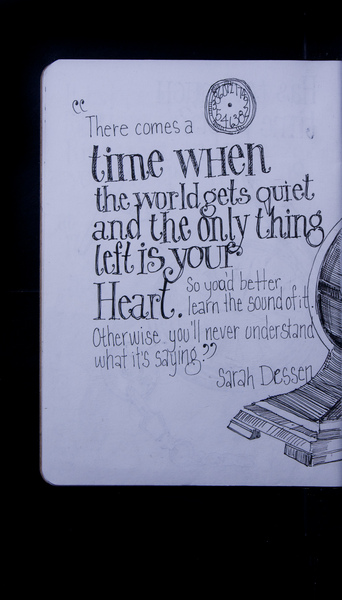 “There comes a
time when
the world gets quiet
and the only thing
left is your
Heart. So you'd better
learn the sound of it.
Otherwise you'll never understand
what it's saying.”
Sarah Dessen